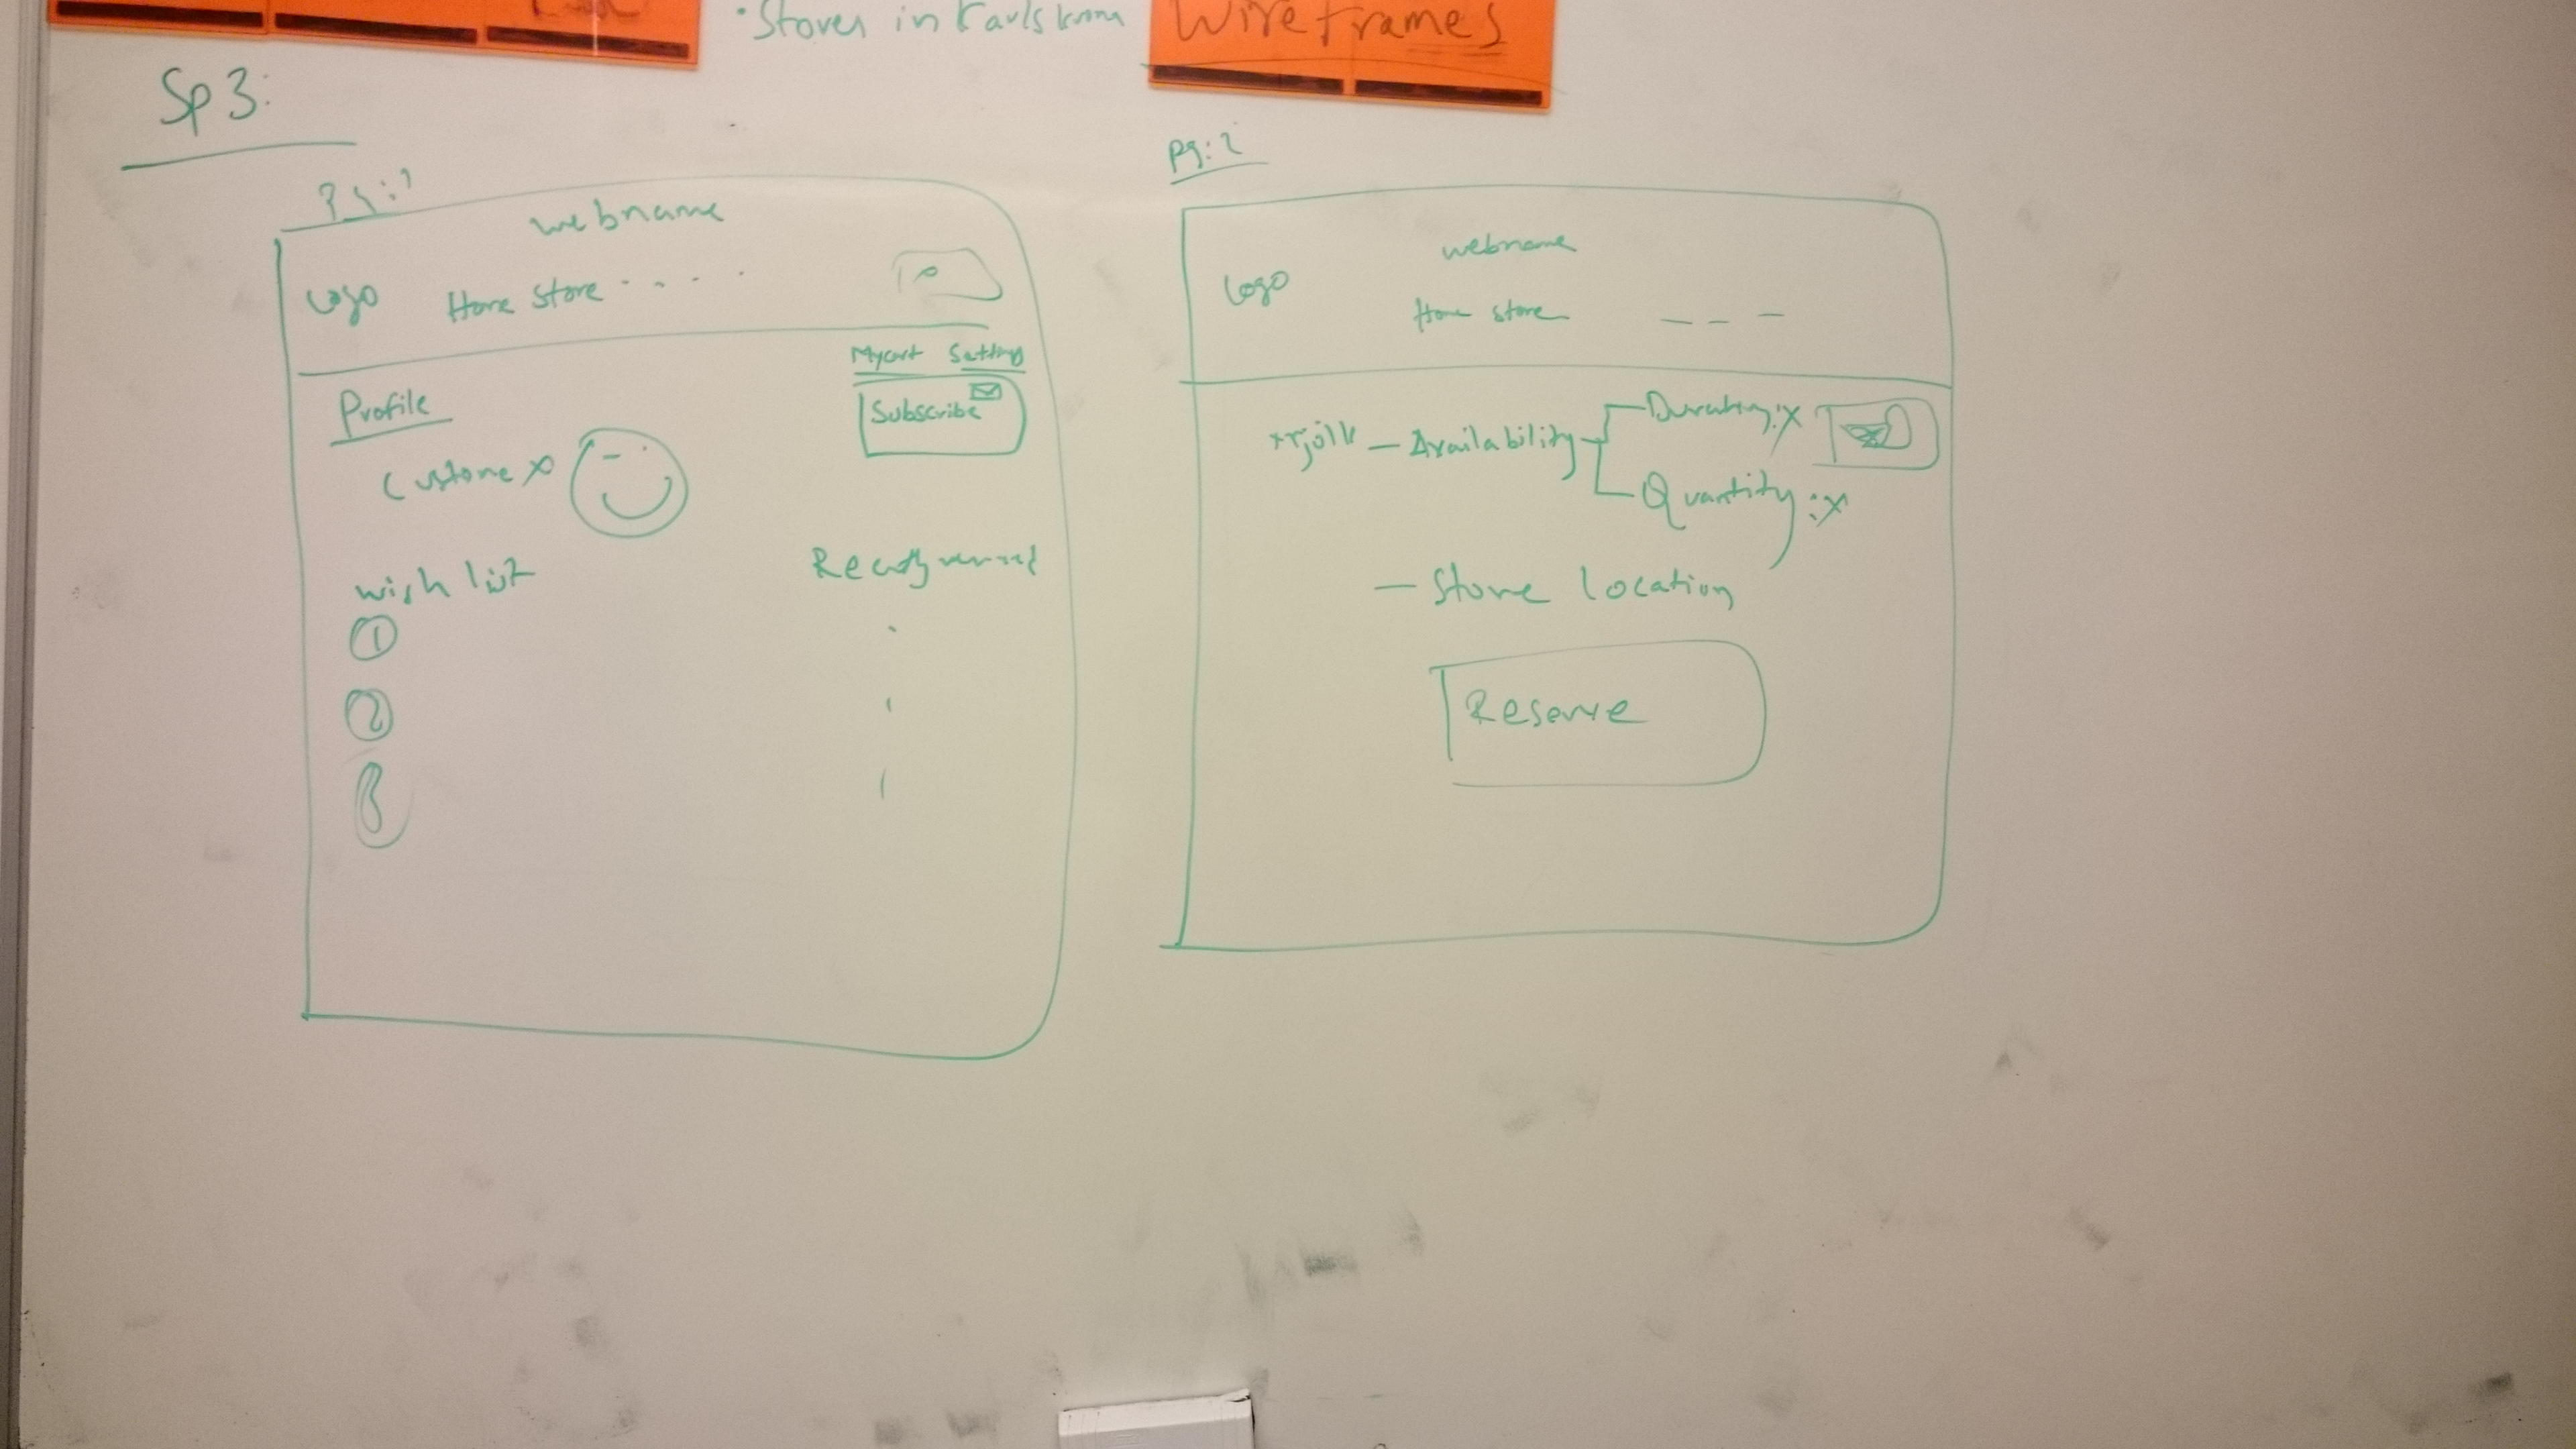 • Stores in Karlskrona
Wireframes
Sp 3:
Pg:1
webname
Logo
Home Store . . . .
Mycart Setting
Subscribe
Profile
Custome x
wish list
1
2
3
Pg:2
webname
Logo
Home store _ _ _
— Availability
Duration:x
Quantity:x
— Store location
Reserve